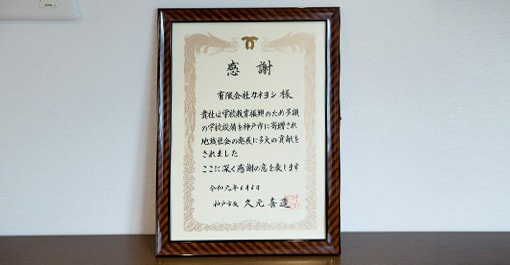 感謝
有限会社カネヨシ 様
貴社は学校教育振興のため多額
の学校設備を神戸市に寄贈され
地域社会の発展に多大の貢献を
されました
ここに深く感謝の意を表します
令和元年6月6日
神戸市長 久元喜造